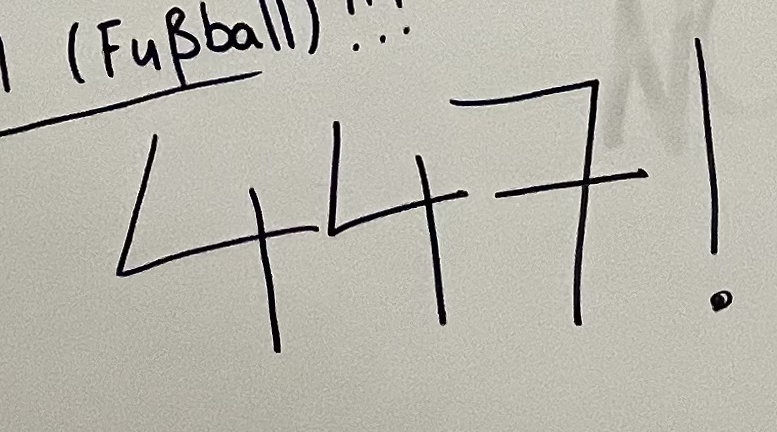 (Fußball)!!!
447!